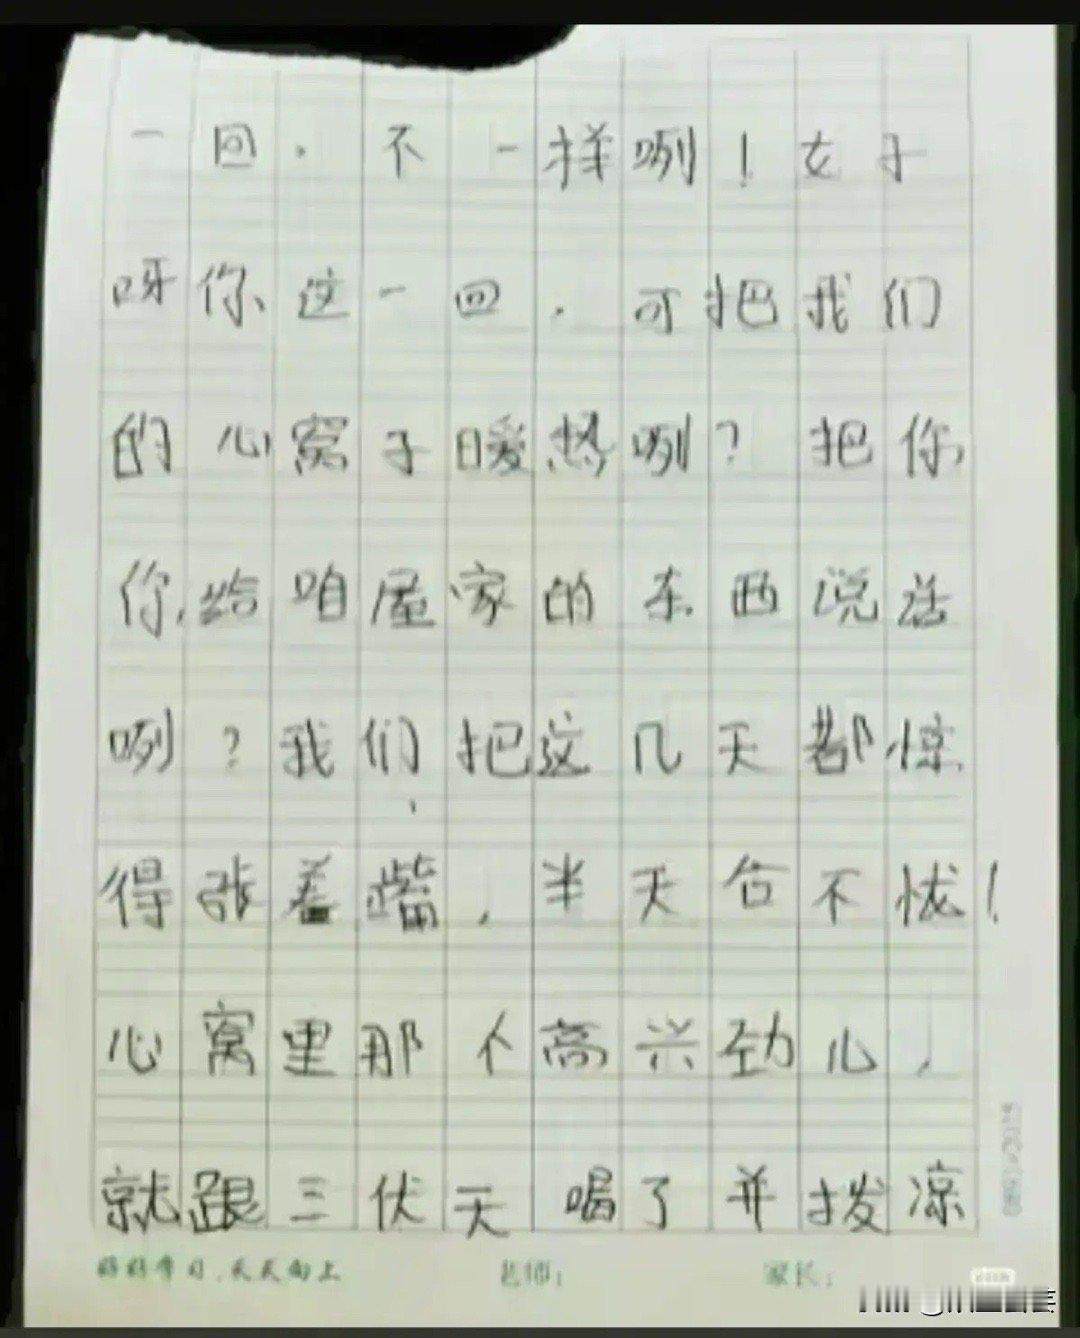 一回.不一样咧！女子
呀你这一回.可把我们
的心窝子暖热咧？把你
你给咱屋家的东西说活
咧？我们把这几天都惊
得张着嘴，半天合不拢！
心窝里那个高兴劲儿，
就跟三伏天喝了井拨凉
好好学习，天天向上 老师： 家长：